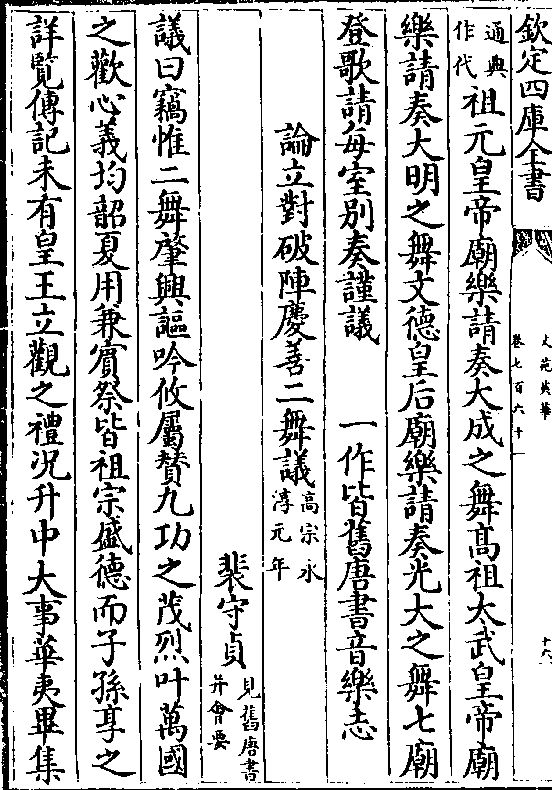 欽定四庫全書
文苑英華
卷七百六十一
十六
通典作代祖元皇帝廟樂請奏大成之舞高祖太武皇帝廟
樂請奏大明之舞文德皇后廟樂請奏光大之舞七廟
登歌請每室別奏謹議　一作皆舊唐書音樂志
論立對破陣慶善二舞議高宗永淳元年
裴守貞見舊唐書并會要
議曰竊惟二舞肇興謳吟攸屬贊九功之茂烈叶萬國
之歡心義均韶夏用兼賓祭皆祖宗盛德而子孫享之
詳覽傳記未有皇王立觀之禮況升中大事華夷畢集